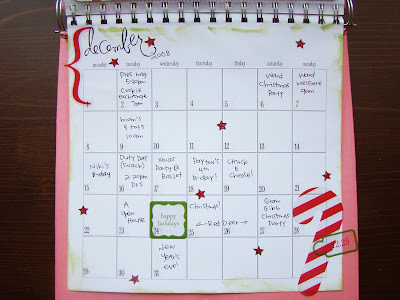 december
2008
monday tuesday wednesday thursday friday saturday sunday
Pres Mtg
5:30pm
Cookie
Exchange
7pm
Ward
Christmas
Party
Ward
Welfare
9am
1 2 3 4 5 6 7
mom's
& tots
10am
8 9 10 11 12 13 14
Niki's
B-day
Duty Day
(Snack)
2:20pm
Xmas
Party @
Ballet
Payton's
4th
B-day!
Chuck
E
Cheese!
15 16 17 18 19 20 21
A
open
House
happy
holidays
Christmas!
<- Red Deer ->
Gram
Gibb
Christmas
Party
22 23 24 25 26 27 28
12.25
New
Year's
eve!
29 30 31